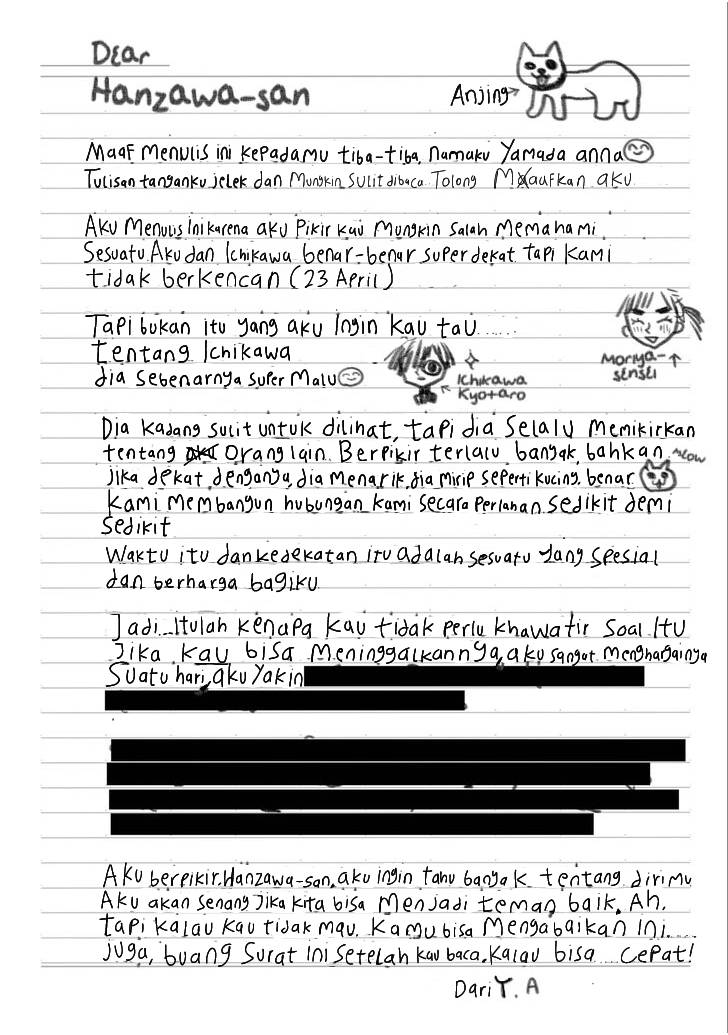 Dear
Hanzawa-san
Anjing
Maaf Menulis ini kepadamu tiba-tiba, namaku Yamada anna
Tulisan tanganku jelek dan Mungkin sulit dibaca. Tolong Maafkan aku
Aku Menulis Ini karena aku Pikir kau Mungkin Salah Memahami
Sesuatu. Aku dan Ichikawa benar-benar super dekat tapi kami
tidak berkencan (23 April)
Tapi bukan itu yang aku Ingin kau tau......
tentang Ichikawa
dia sebenarnya super Malu
Moriya-sensei
Ichikawa
Kyotaro
Dia kadang sulit untuk dilihat, tapi dia selalu memikirkan
tentang orang lain. Berpikir terlalu banyak, bahkan
jika dekat denganya, dia menarik, dia mirip seperti kucing. benar
kami membangun hubungan kami secara perlahan. sedikit demi
sedikit
Waktu itu dan kedekatan itu adalah sesuatu yang spesial
dan berharga bagiku
Jadi...Itulah kenapa kau tidak perlu khawatir soal Itu
Jika kau bisa meninggalkannya, aku sangat menghargainya
Suatu hari, aku yakin
Aku berpikir. Hanzawa-san, aku ingin tahu banyak tentang dirimu
Aku akan senang Jika kita bisa Menjadi teman baik. Ah,
tapi kalau kau tidak mau. Kamu bisa Mengabaikan Ini....
Juga, buang Surat ini setelah kau baca. Kalau bisa... cepat!
Dari Y. A